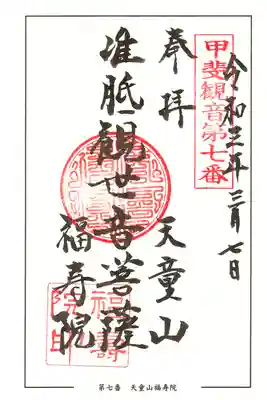 甲斐観音第七番
令和三年三月七日
奉拝
天童山
准胝観世音菩薩
福寿院
福寿院印
第七番 天童山福寿院